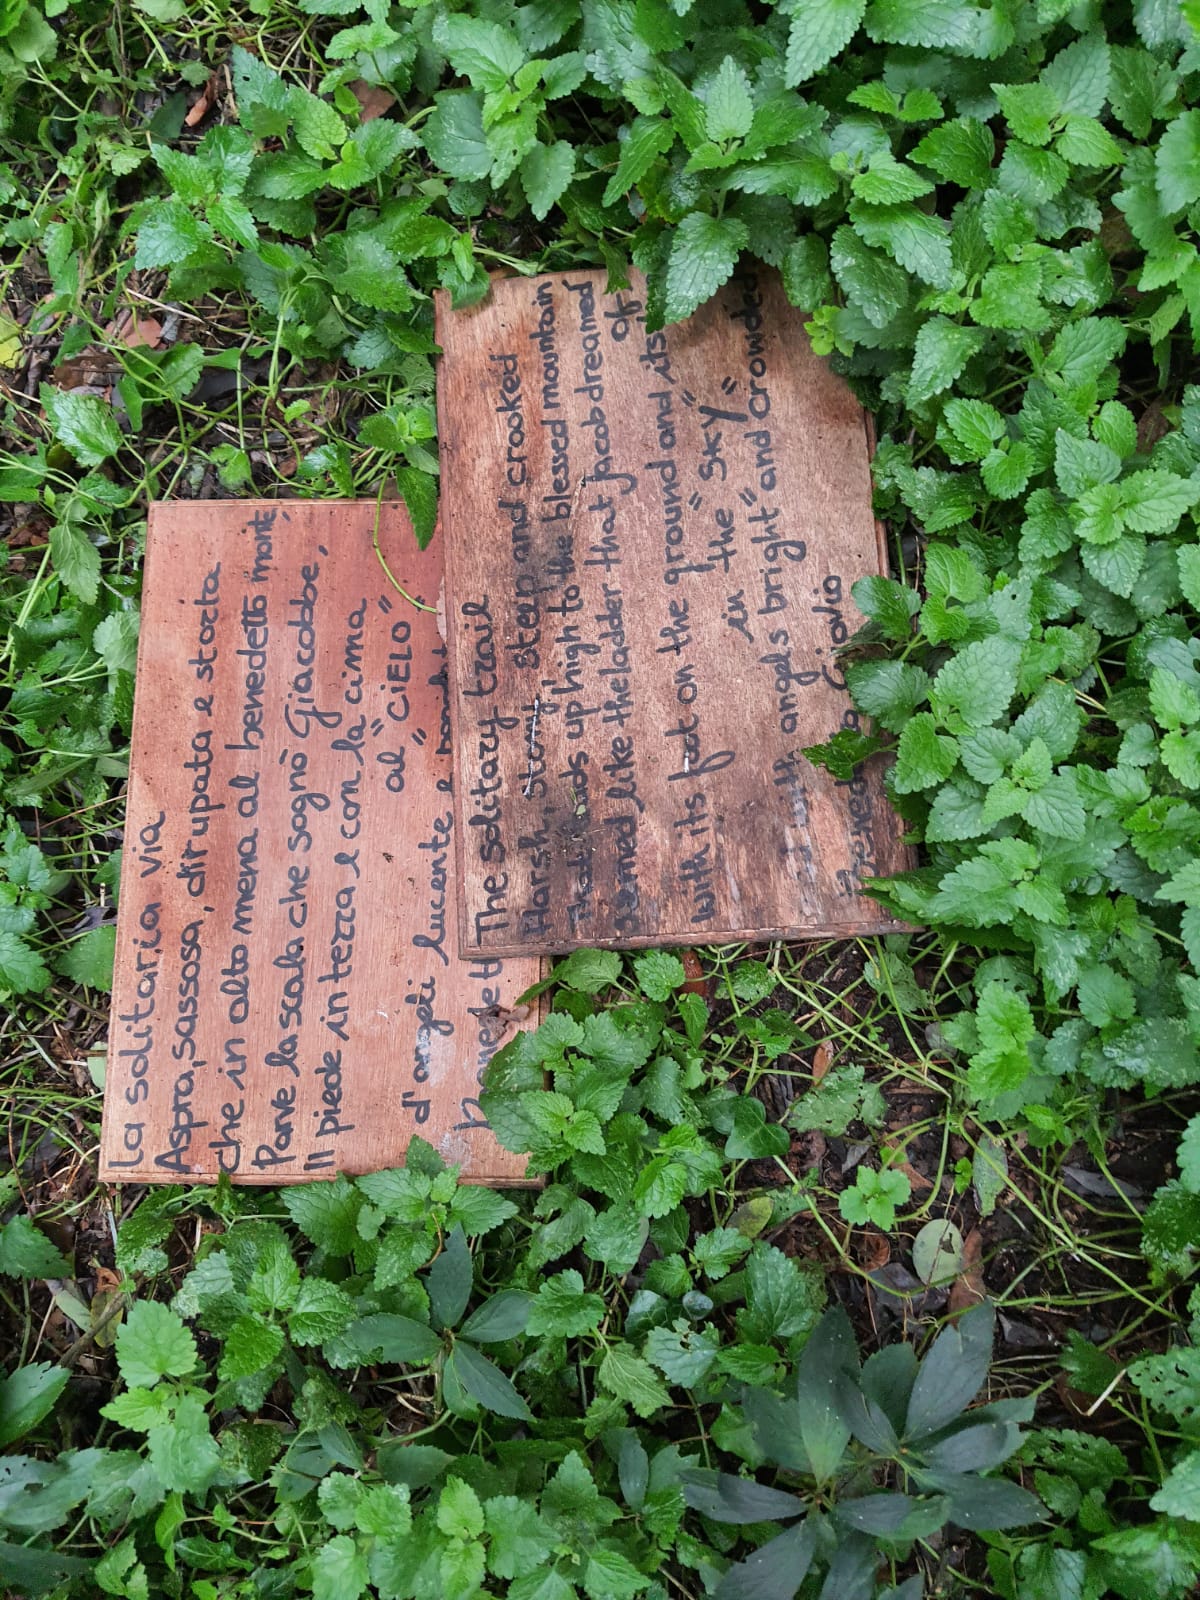 La solitaria via
Aspra, sassosa, dirupata e storta
che in alto mena al benedetto monte,
Parve la scala che sognò Giacobbe,
Il piede in terra e con la cima
al "CIELO"
d'angeli lucente e
The solitary trail
Harsh, stony, steep and crooked
up high to the blessed mountain
semed like the ladder that Jacob dreamed
of,
with its foot on the ground and its
in the "SKY"
with angels bright" and crowded
Giovio